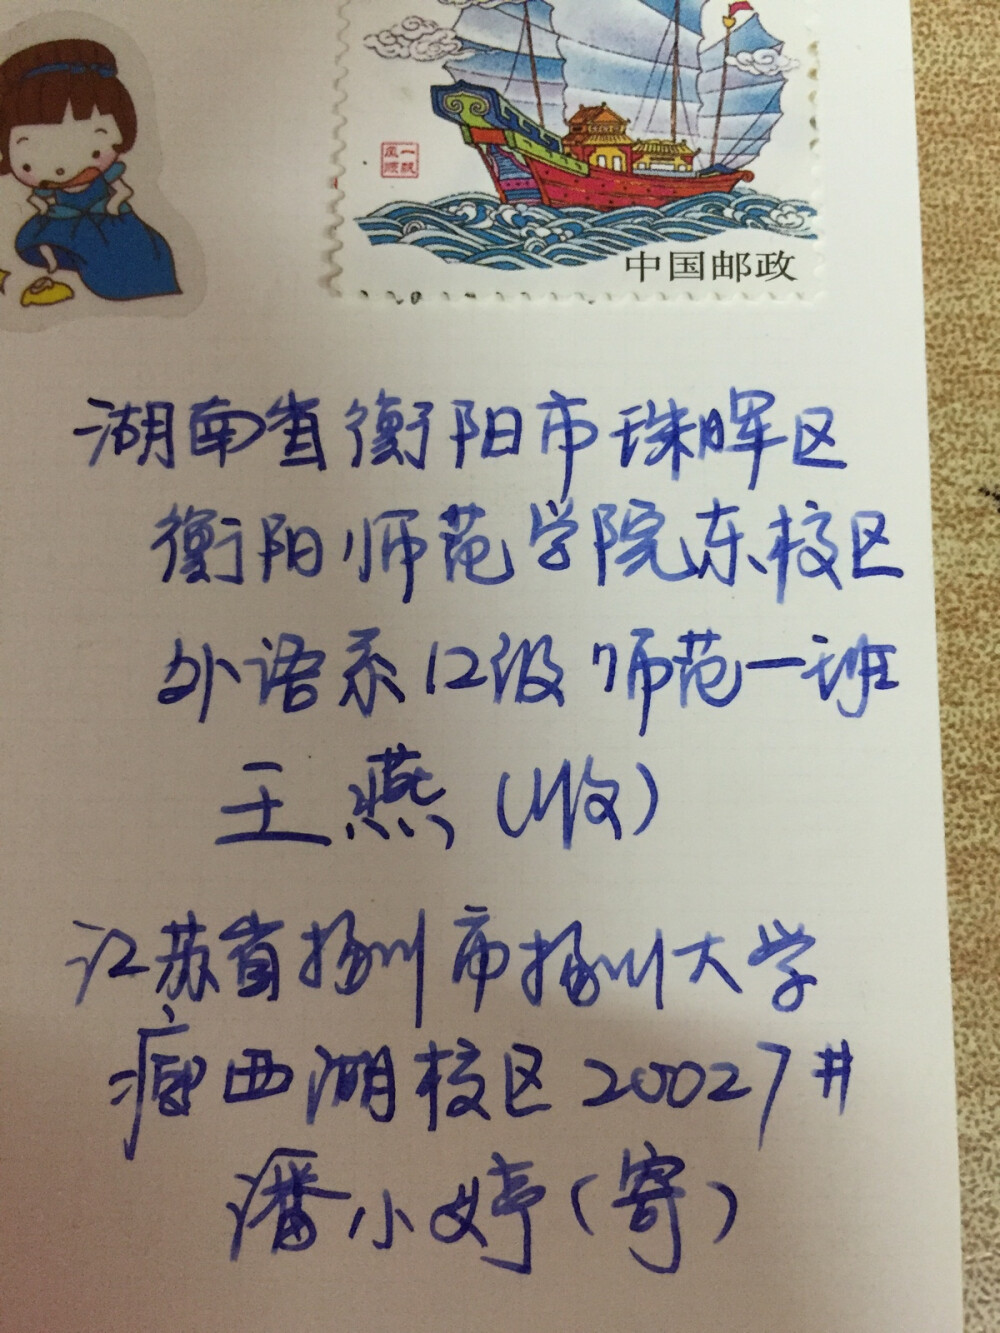 一帆
风顺
中国邮政
湖南省衡阳市珠晖区
衡阳师范学院东校区
外语系12级师范一班
王燕(收)
江苏省扬州市扬州大学
瘦西湖校区20027#
潘小婷(寄)